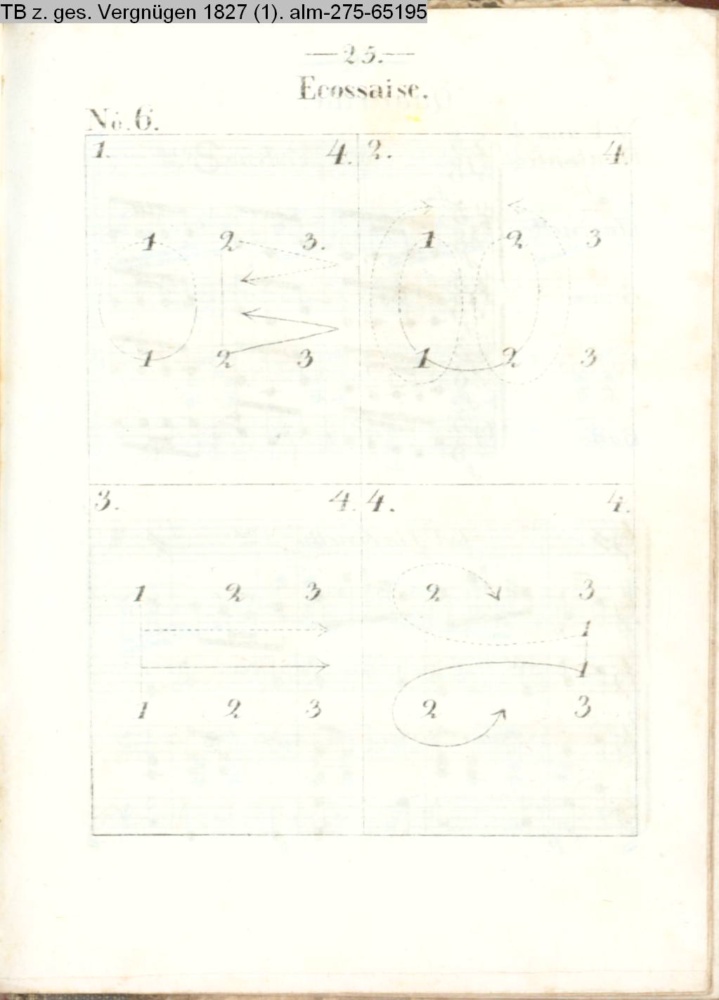 TB z. ges. Vergnügen 1827 (1). alm-275-65195
—25.—
Ecossaise.
No. 6.
1. 4.
1 2 3.
1 2 3
2. 4.
1 2 3
1 2 3
3. 4.
1 2 3
1 2 3
4. 4.
2 3
1
1
2 3